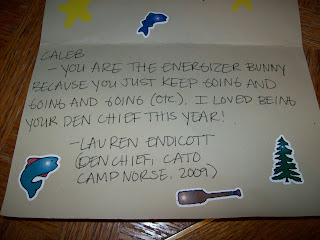 CALEB
- YOU ARE THE ENERGIZER BUNNY
BECAUSE YOU JUST KEEP GOING AND
GOING AND GOING (etc). I LOVED BEING
YOUR DEN CHIEF THIS YEAR!
- LAUREN ENDICOTT
(DEN CHIEF, CATO
CAMP NORSE, 2009)